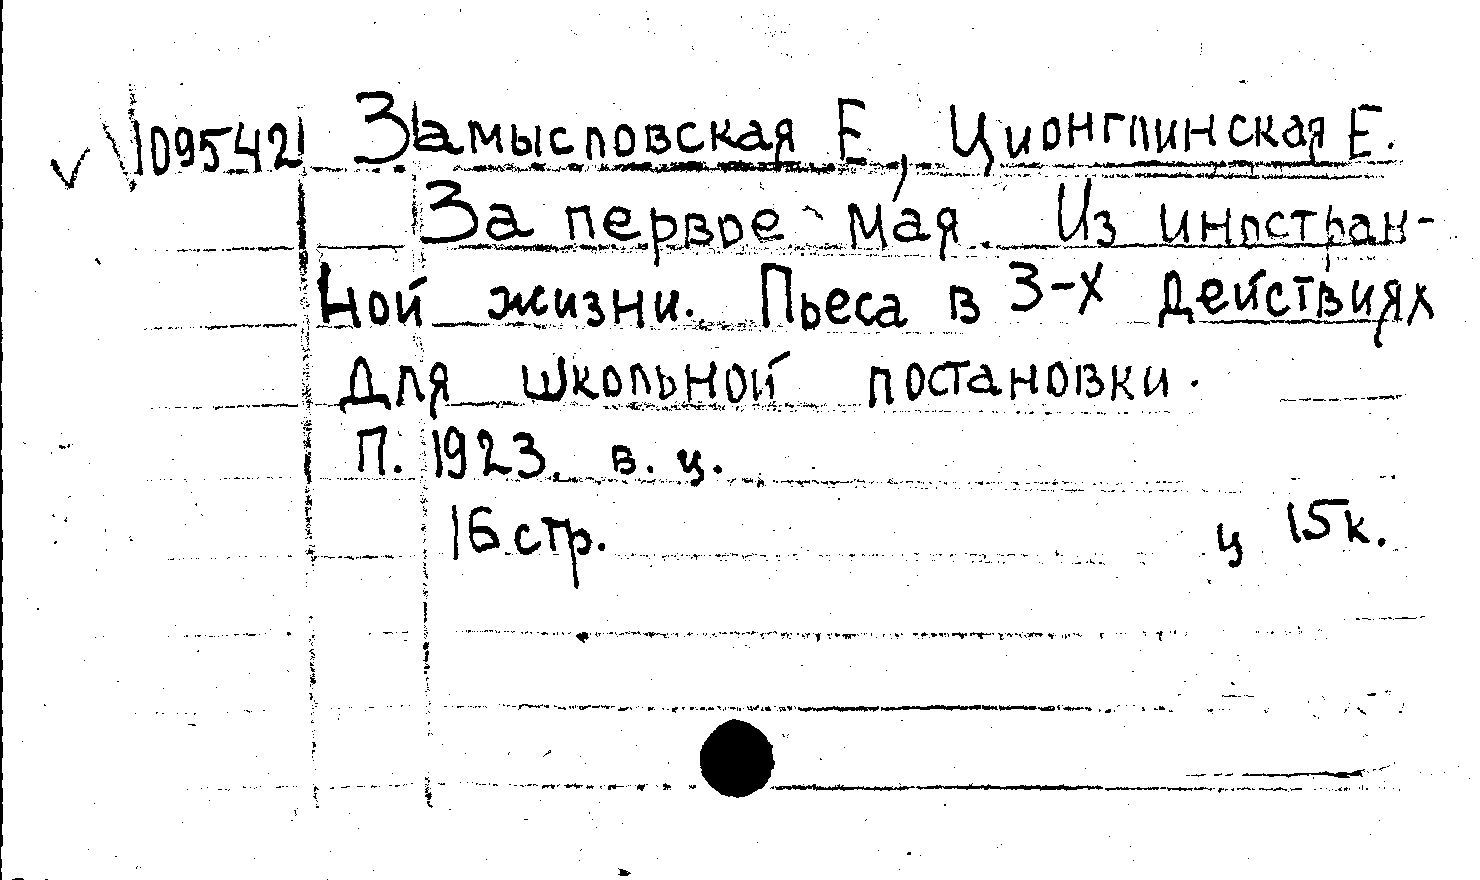 109542 Замысловская Е, Ционглинская Е.
За первое мая. Из иностран-
ной жизни. Пьеса в 3-х действиях
для школьной постановки.
П. 1923. в. ц.
16 стр. ц 15 к.